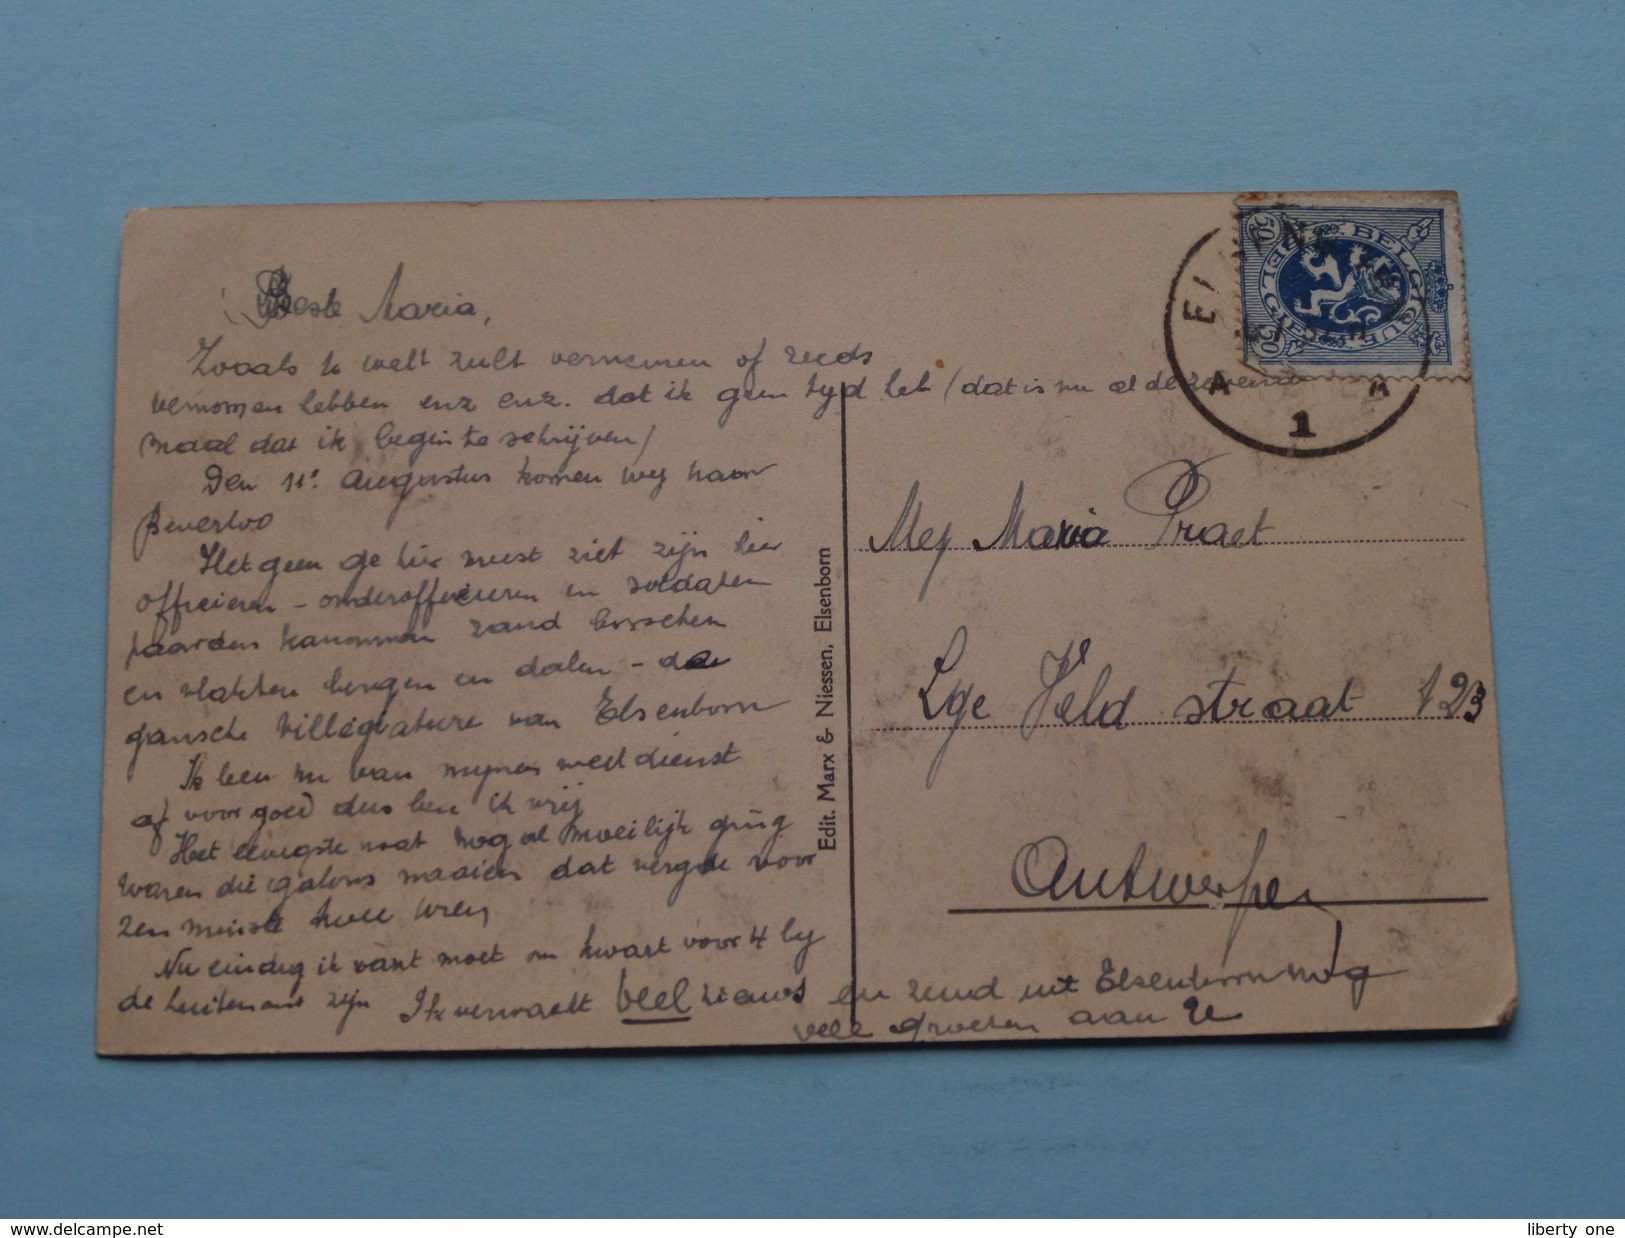 Beste Maria,
Zooals te welt zult vernemen of reeds
vernomen hebben enz enz. dat ik geen tyd heb (dat is nu al de zevende
maal dat ik begin te schrijven)
Den 11e Augustus komen wy naar
Beverloo
Het geen ge hier meest ziet zijn hier
officieren - onderofficieren en soldaten
paarden kanonnen zand bosschen
en vlakten bergen en dalen - de
gansche villégiature van Elsenborn
Ik ben nu van mynen dienst
af voor goed dus ben ik vrij
Het eenigste wat nog al moeilijk ging
waren die galons maaien dat vergde voor
zen minste twee uren
Nu eindig ik want moet om kwart voor 4 by
de luitenant zijn Ik verwacht veel nieuws en zend uit Elsenborn nog
vele groeten aan U
Mej Maria Praet
Lge Veld straat 123
Antwerpen
Edit. Marx & Niessen, Elsenborn
BELGIQUE BELGIË
50 50
A 1 A
delcampe.net
liberty one